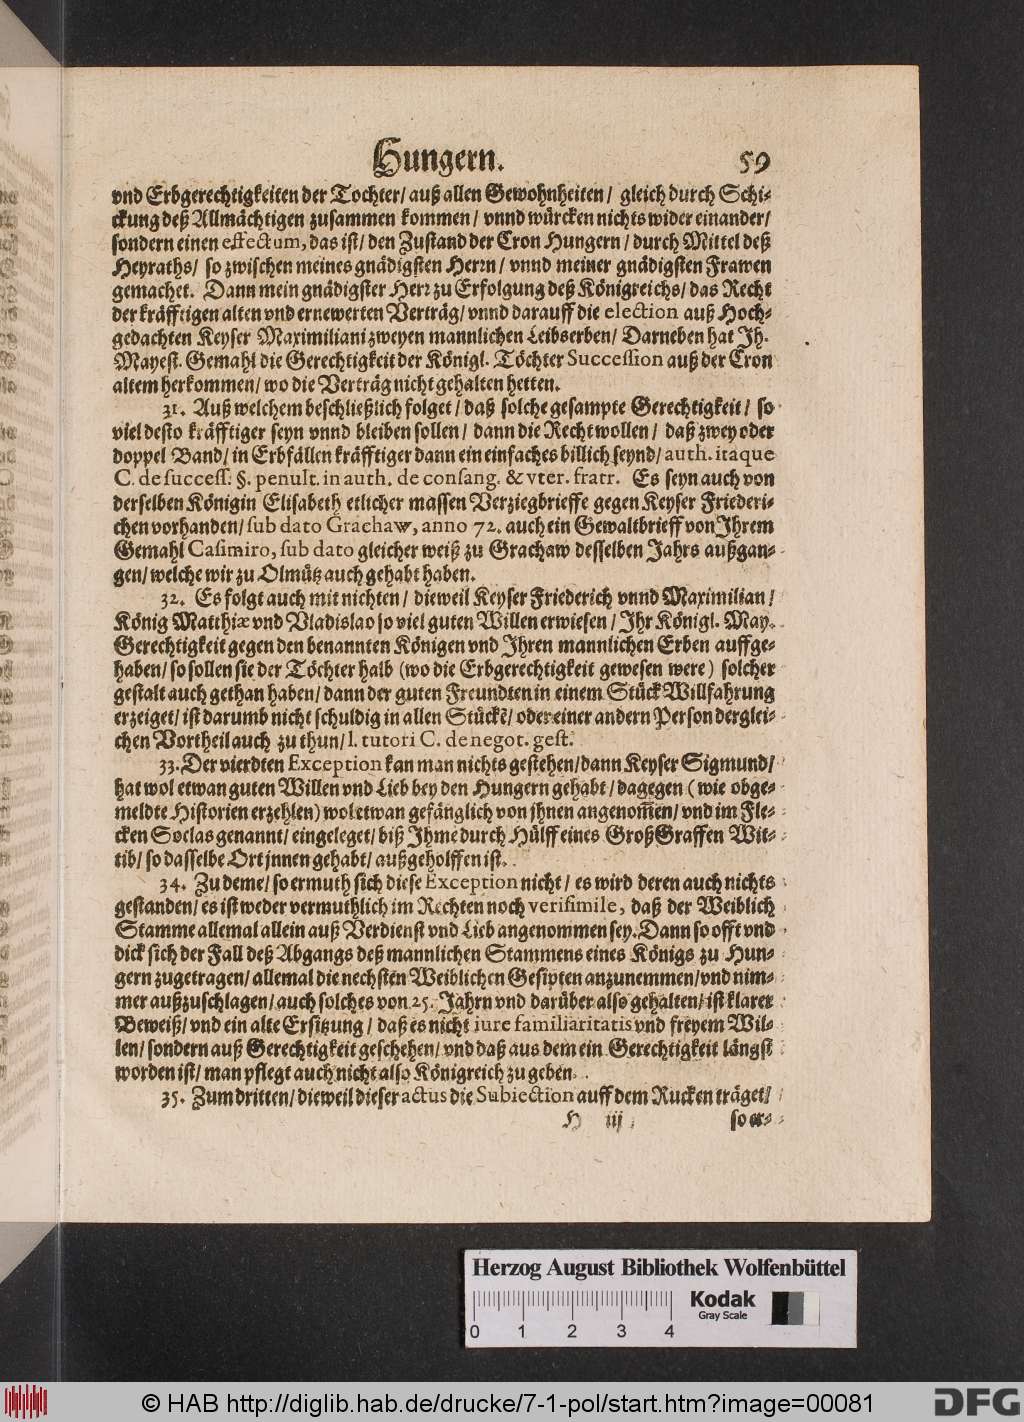 Hungern. 59
vnd Erbgerechtigkeiten der Tochter/ auß allen Gewohnheiten/ gleich durch Schi-
ckung deß Allmächtigen zusammen kommen/ vnnd würcken nichts wider einander/
sondern einen effectum, das ist/ den Zustand der Cron Hungern/ durch Mittel deß
Heyraths/ so zwischen meines gnädigsten Herrn/ vnnd meiner gnädigsten Frawen
gemachet. Dann mein gnädigster Herr zu Erfolgung deß Königreichs/ das Recht
der kräfftigen alten vnd ernewerten Verträg/ vnnd darauff die election auß Hoch-
gedachten Keyser Maximiliani zweyen mannlichen Leibserben/ Darneben hat Ih.
Mayest. Gemahl die Gerechtigkeit der Königl. Töchter Succession auß der Cron
altem herkommen/ wo die Verträg nicht gehalten hetten.
31. Auß welchem beschließlich folget/ daß solche gesampte Gerechtigkeit/ so
viel desto kräfftiger seyn vnnd bleiben sollen/ dann die Recht wollen/ daß zwey oder
doppel Band/ in Erbfällen kräfftiger dann ein einfaches billich seynd/ auth. itaque
C. de success. §. penult. in auth. de consang. & vter. fratr. Es seyn auch von
derselben Königin Elisabeth etlicher massen Verziegbrieffe gegen Keyser Friederi-
chen vorhanden/ sub dato Grachaw, anno 72. auch ein Gewaltbrieff von Ihrem
Gemahl Casimiro, sub dato gleicher weiß zu Grachaw desselben Jahrs außgan-
gen/ welche wir zu Olmütz auch gehabt haben.
32. Es folgt auch mit nichten/ dieweil Keyser Friederich vnnd Maximilian/
König Matthiæ vnd Vladislao so viel guten Willen erwiesen/ Ihr Königl. May.
Gerechtigkeit gegen den benannten Königen vnd Ihren mannlichen Erben auffge-
haben/ so sollen sie der Töchter halb (wo die Erbgerechtigkeit gewesen were) solcher
gestalt auch gethan haben/ dann der guten Freundten in einem Stück Willfahrung
erzeiget/ ist darumb nicht schuldig in allen Stückẽ/ oder einer andern Person derglei-
chen Vortheil auch zu thun/ l. tutori C. de negot. gest.
33. Der vierdten Exception kan man nichts gestehen/ dann Keyser Sigmund/
hat wol etwan guten Willen vnd Lieb bey den Hungern gehabt/ dagegen (wie obge-
meldte Historien erzehlen) wol etwan gefänglich von jhnen angenom̃en/ vnd im Fle-
cken Soclas genannt/ eingeleget/ biß Ihme durch Hülff eines Groß Graffen Wit-
tib/ so dasselbe Ort jnnen gehabt/ außgeholffen ist.
34. Zu deme/ so ermuth sich diese Exception nicht/ es wird deren auch nichts
gestanden/ es ist weder vermuthlich im Rechten noch verisimile, daß der Weiblich
Stamme allemal allein auß Verdienst vnd Lieb angenommen sey. Dann so offt vnd
dick sich der Fall deß Abgangs deß mannlichen Stammens eines Königs zu Hun-
gern zugetragen/ allemal die nechsten Weiblichen Gesipten anzunemmen/ vnd nim-
mer außzuschlagen/ auch solches von 25. Jahrn vnd darüber also gehalten/ ist klarer
Beweiß/ vnd ein alte Ersitzung/ daß es nicht iure familiaritatis vnd freyem Wil-
len/ sondern auß Gerechtigkeit geschehen/ vnd daß aus dem ein Gerechtigkeit längst
worden ist/ man pflegt auch nicht also Königreich zu geben.
35. Zum dritten/ dieweil dieser actus die Subiection auff dem Rucken träget/
H iij so er-
Herzog August Bibliothek Wolfenbüttel
Kodak
Gray Scale
0 1 2 3 4
© HAB http://diglib.hab.de/drucke/7-1-pol/start.htm?image=00081
DFG